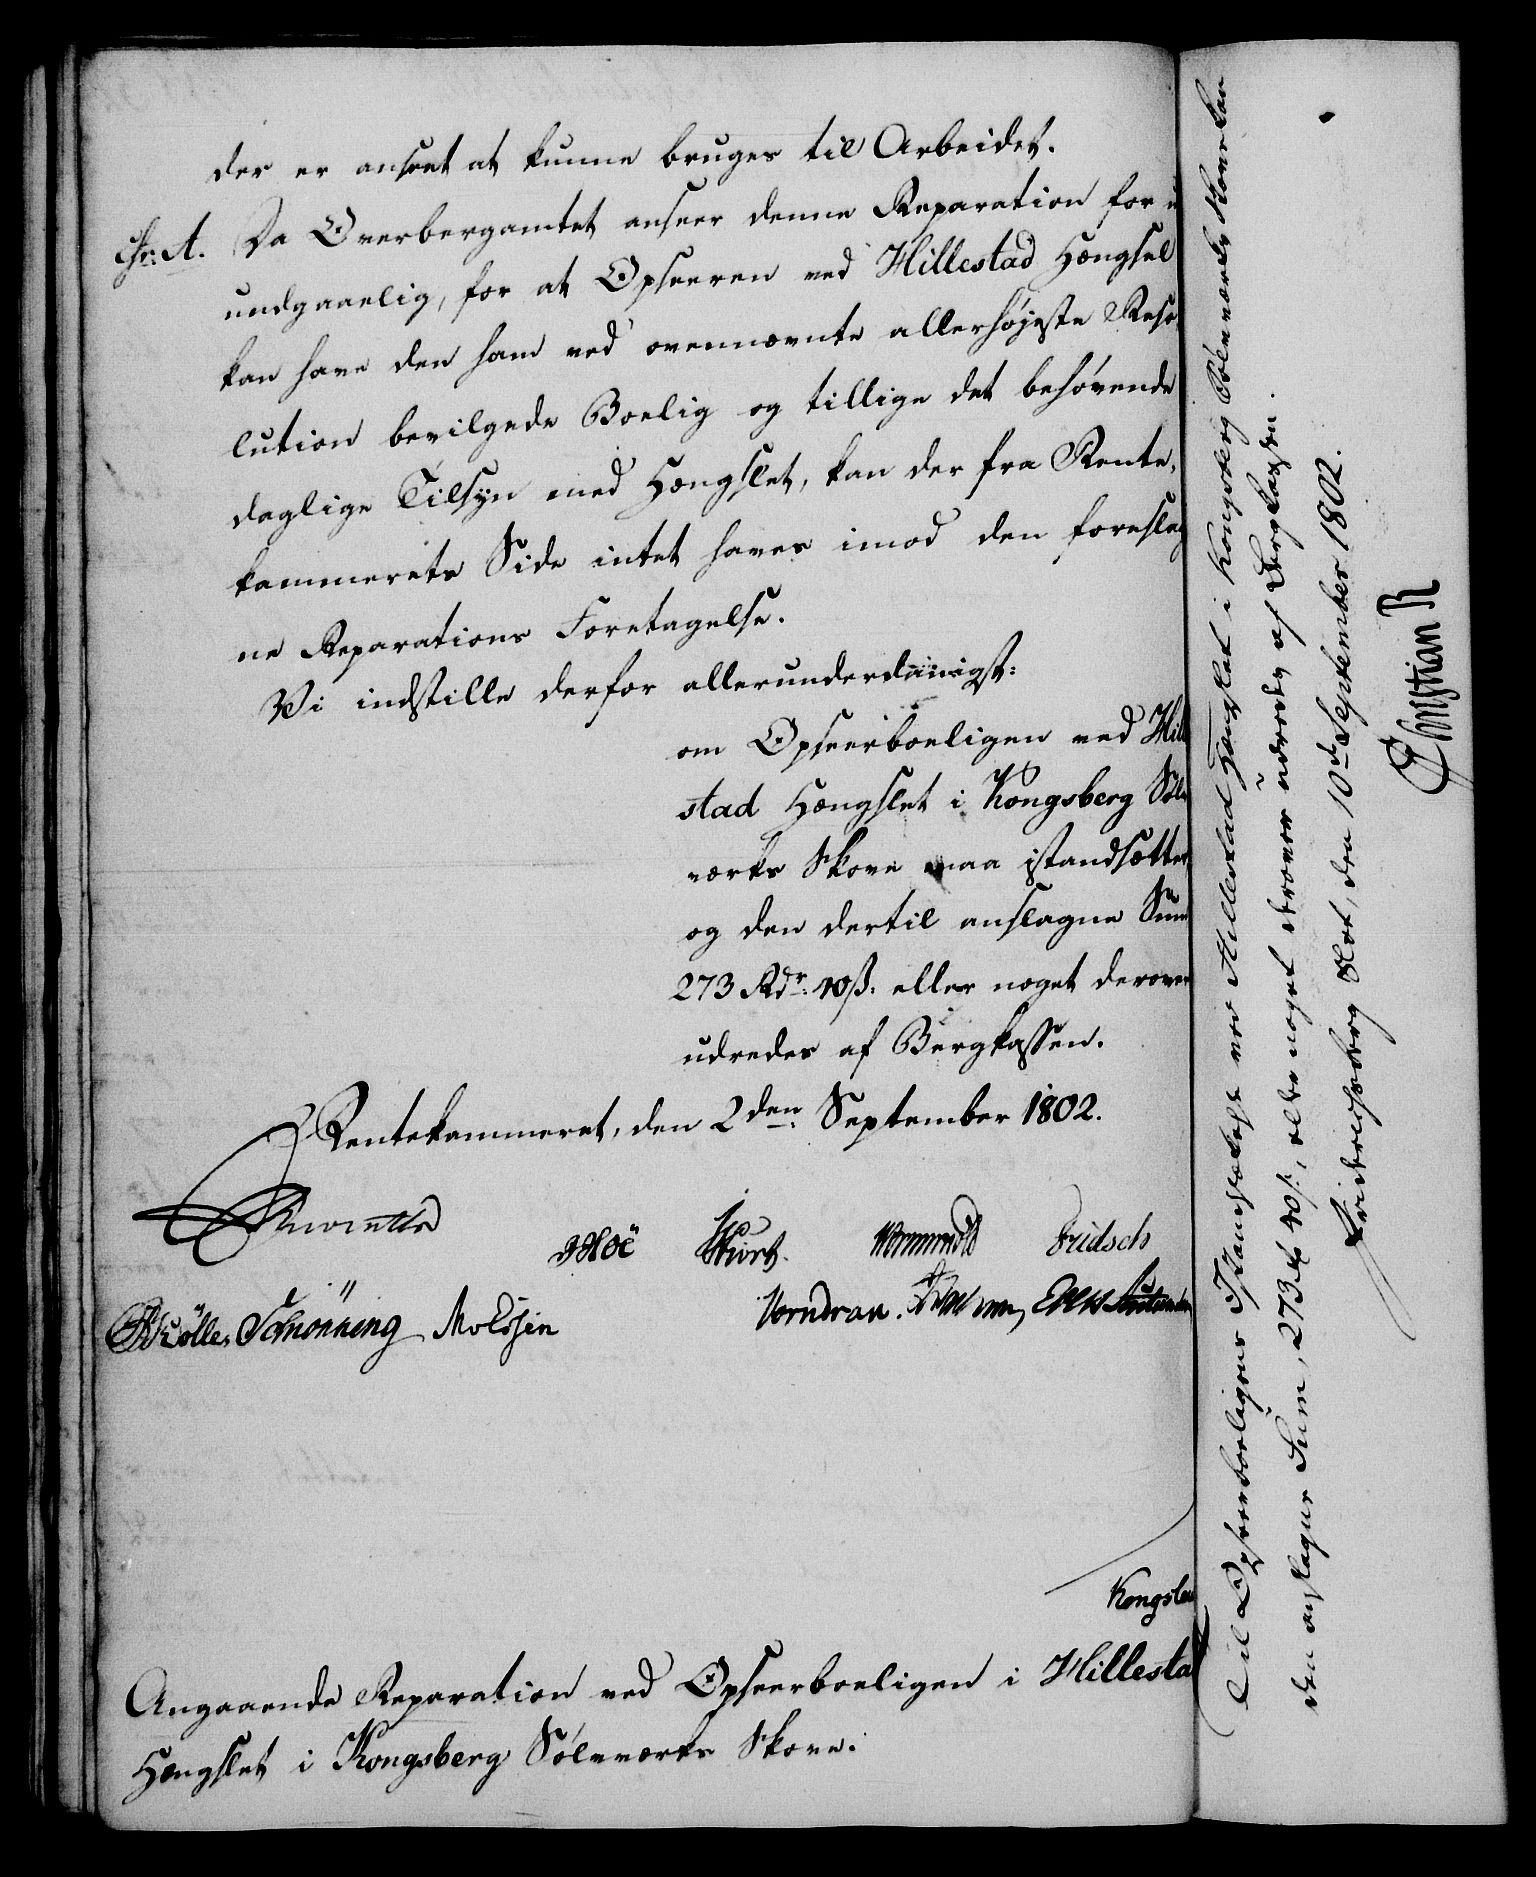 der er anseet at kunne bruges til Arbeidet.
Da Overbergamtet anseer denne Reparation for u
undgaaelig, for at Opseeren ved Hillestad Hængsel
kan have den ham ved ovennævnte allerhøjeste Reso
lution bevilgede Boelig og tillige det behøvende
daglige Tilsyn med Hængslet, kan der fra Rente,
kammerets Side intet haves imod den foreslag
ne Reparations Foretagelse.
Vi indstille derfor allerunderdanigst:
om Opseerboeligen ved Hille
stad Hængslet i Kongsberg Søl
værks Skove maa istandsættes
og den dertil anslagne Sum
273 Rdr. 40 ß. eller noget derover
udredes af Bergkassen.
Rentekammeret, den 2den September 1802.
Wormskiold Fridsch
Schønning Moldjin
Vorndran.
Kongsber
Angaaende Reparation ved Opseerboeligen i Hillestad
Hængslet i Kongsberg Sølvværks Skove.
Til Opseerboeligens Istandsættelse ved Hillestad Hængslet i Kongsberg Sølvværks Skove kan
den anslagne Sum, 273 Rd 40 ß, eller noget derover udredes af Bergkassen.
Friderichsberg Slot, den 10de September 1802.
Christian R